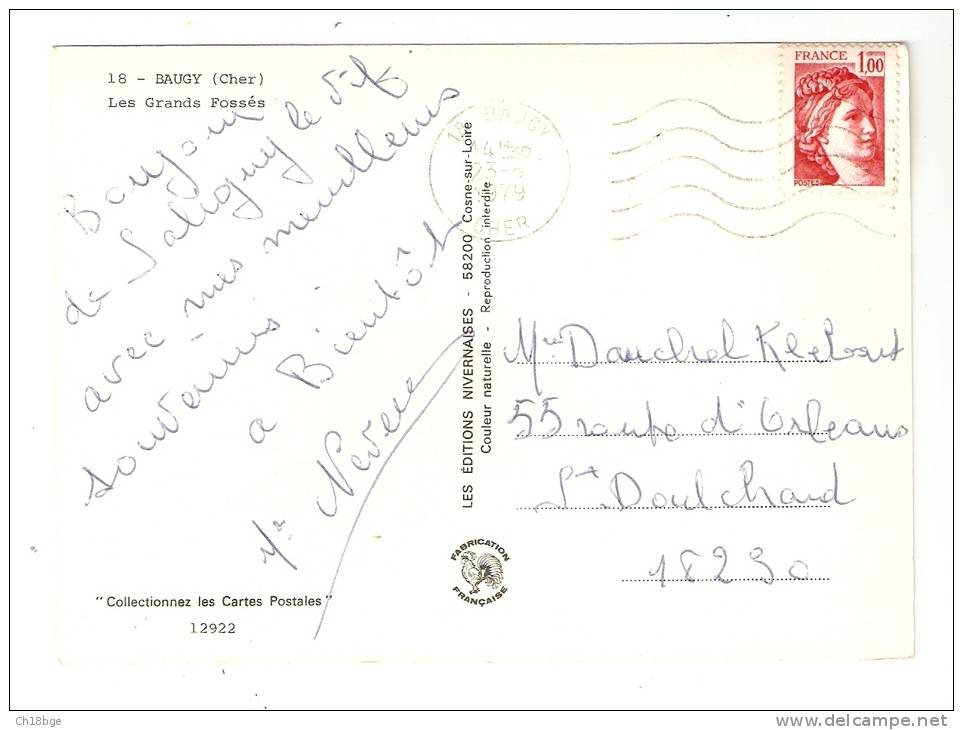 18 - BAUGY (Cher)
Les Grands Fossés
Bonjour
de Saligny le Vif
avec mes meilleurs
souvenirs.
a Bientôt
Me Neveu
"Collectionnez les Cartes Postales"
12922
LES ÉDITIONS NIVERNAISES - 58200 Cosne-sur-Loire
Couleur naturelle - Reproduction interdite
FABRICATION
FRANÇAISE
18 BAUGY
14H30
23-
1979
CHER
FRANCE
1,00
POSTES
Dauchel Klebert
55 route d'Orleans
St Doulchard
18230
Ch18bge
www.delcampe.net